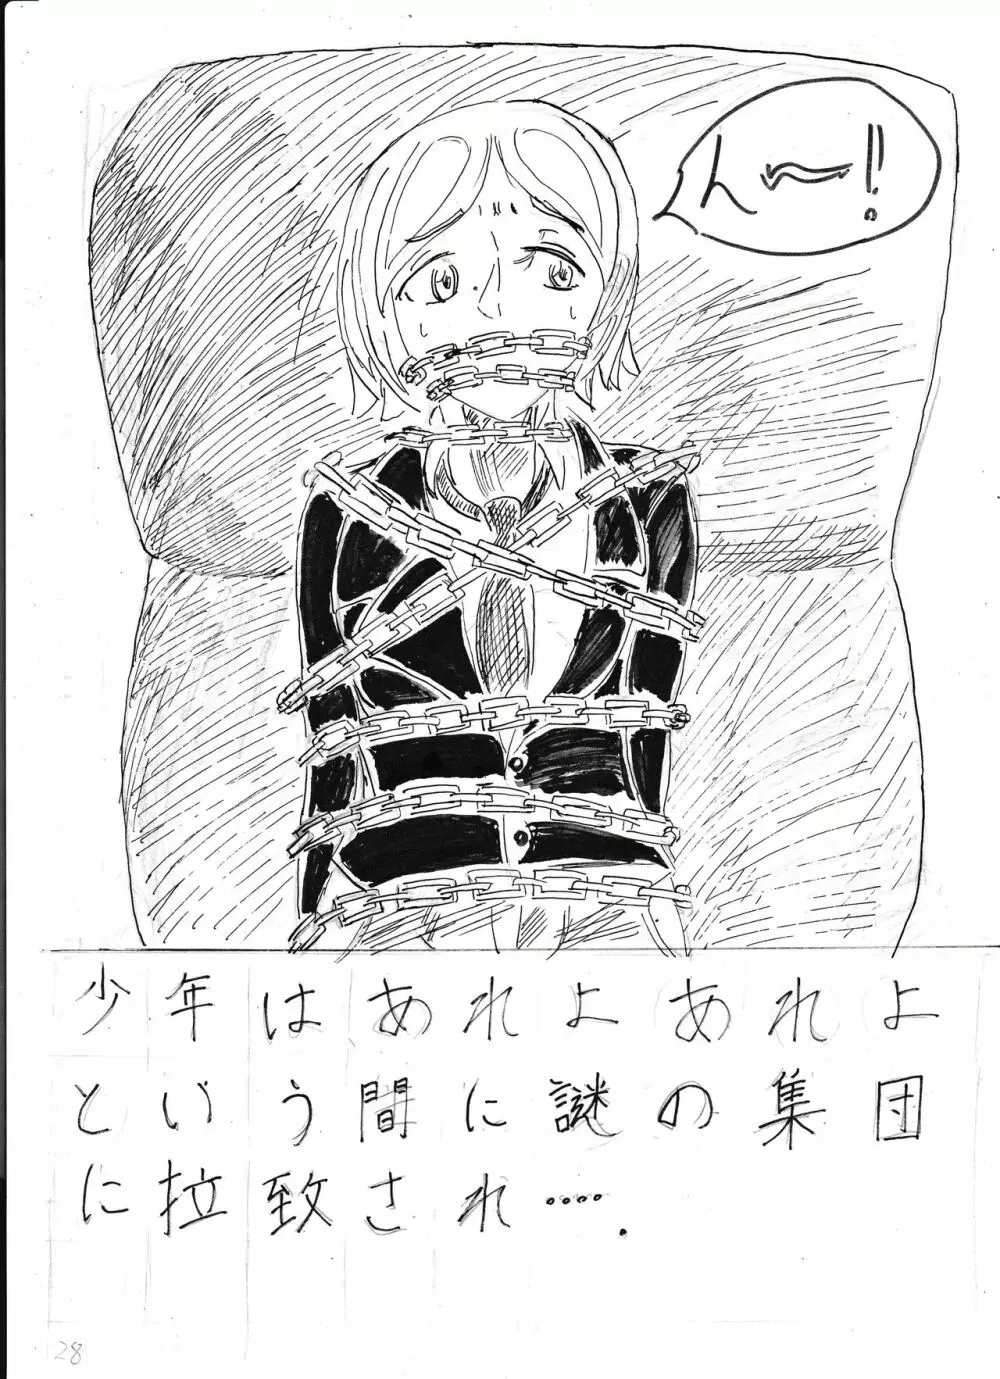 んー!!
少年はあれよあれよ
という間に謎の集団
に拉致され…．
28